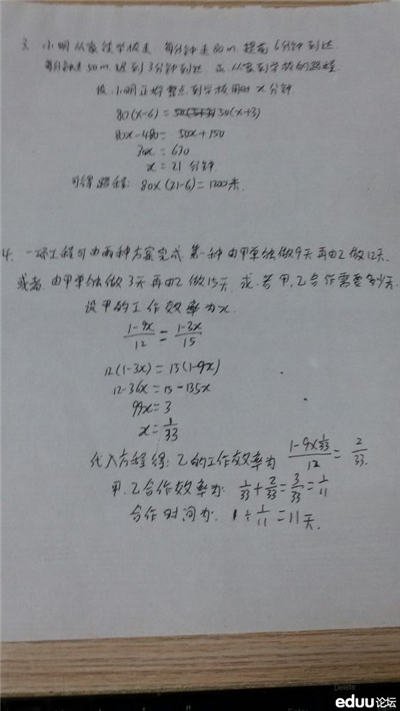 3. 小明从家往学校走,每分钟走80m,提前6分钟到达.
每分钟走50m,迟到3分钟到达 求从家到学校的路程.
设小明正好整点到学校用时x分钟.
80(x-6)=50(x+3)
80x-480=50x+150
30x=630
x=21分钟
可得路程: 80x(21-6)=1200米.
4. 一项工程可由两种方案完成 第一种由甲单独做9天再由乙做12天.
或者由甲单独做3天再由乙做15天 求若甲,乙合作需要多少天.
设甲的工作效率为x.
(1-9x)/12=(1-3x)/15
12(1-3x)=15(1-9x)
12-36x=15-135x
99x=3
x=1/33
代入方程得:乙的工作效率为 (1-9x1/33)/12=2/33.
甲.乙合作效率为: 1/33+2/33=3/33=1/11
合作时间为: 1÷1/11=11天.
eduu论坛